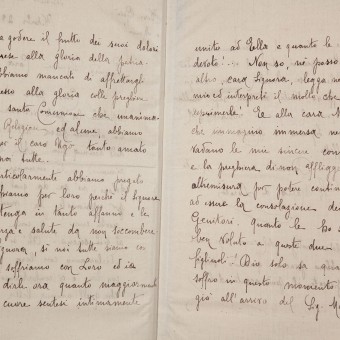 a godere il frutto dei suoi dolori
alla gloria della patria.
abbiamo mancato di affrettargli
alla gloria colle preghiere
santa Comunione che unanimi
Religiose ed alunne, abbiamo
per il caro Ugo tanto amato
noi tutte.
articolarmente abbiamo pregato
per loro perchè il Signore
tenga in tanto affanno e le
forza e salute da non soccombere
Signora, sì noi tutte siamo con
soffriamo con Loro ed io
dirle ora quanto maggiormente
cuore sentesi intimamente
unito ad Ella e quanto le
devoto! - Non so, nè posso
altro, cara Signora, legga nel
mio ed interpreti il molto che
esprimerle! E alla cara
che immagino immersa nel
vadano le mie sincere con
e la preghiera di non affligg
altremisura per poter contin
ad essere la consolazione dei
Genitori, quanto le ho s
ben voluto a queste due
figliuole! Dio solo sa qua
soffro in questo momento
giò all'arrivo del Sig.